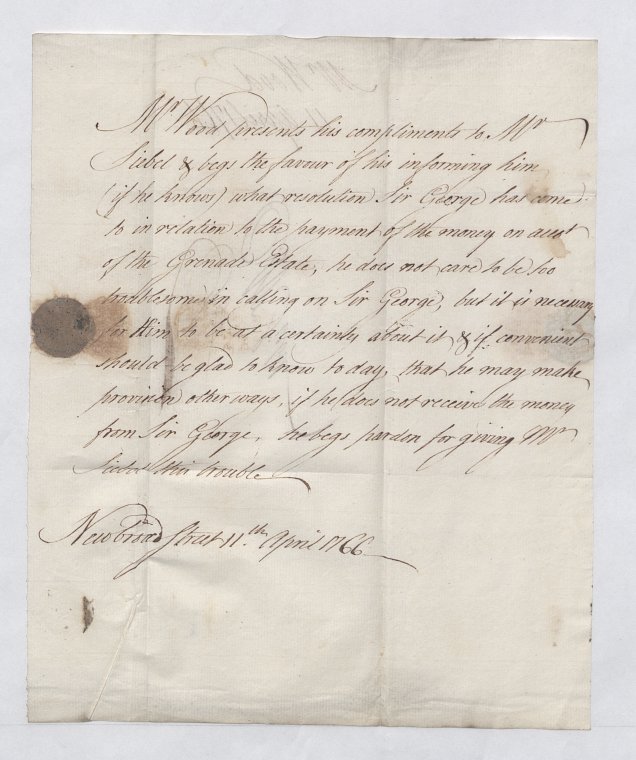 Mr Wood presents his compliments to Mr
Siebel & begs the favour of his informing him
(if he knows) what resolution Sir George has come
to in relation to the payment of the money on acct
of the Grenade Estate, he does not care to be too
troublesome in calling on Sir George, but it is necessary
for Him to be at a certainty about it & if convenient
should be glad to know to day, that he may make
provision other ways, if he does not receive the money
from Sir George, he begs pardon for giving Mr
Siebel this trouble
New broad Street 11th April 1766